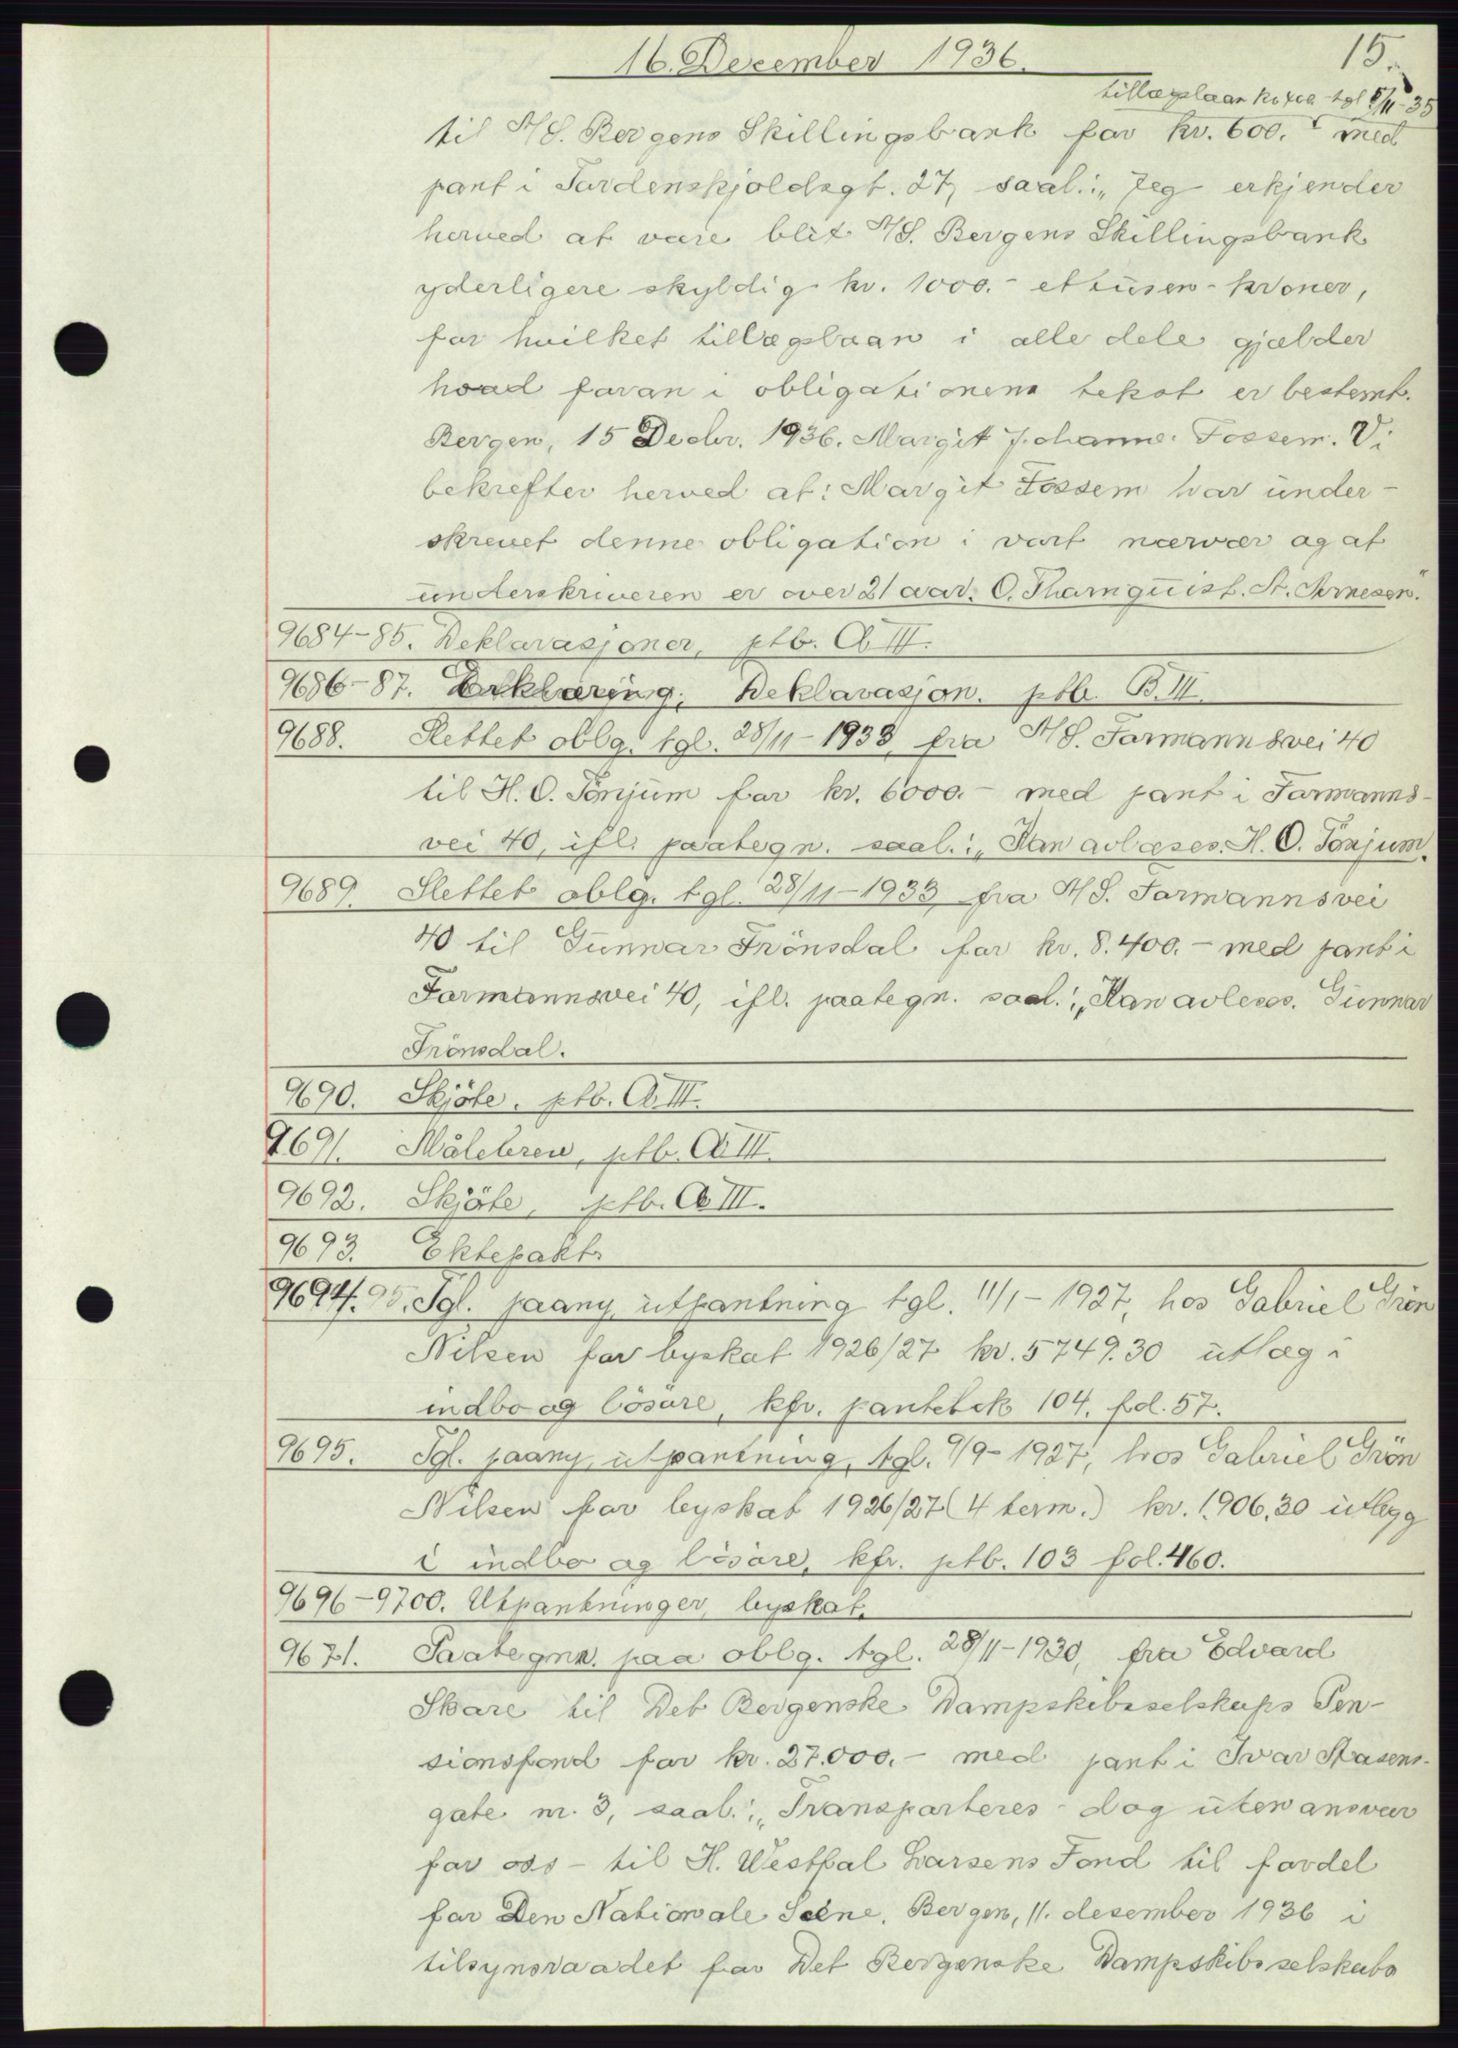 16. December 1936.
15.
tillægslaan kr. 400 tgl 5/11-35
til A/S. Bergens Skillingsbank for kr. 600.- med
pant i Tordenskjoldsgt. 27, saal.: „Jeg erkjender
herved at være blit A/S. Bergens Skillingsbank
yderligere skyldig kr. 1000.- ettusen - kroner,
for hvilket tillægslaan i alle dele gjælder
hvad foran i obligationens tekst er bestemt.
Bergen, 15 Decbr. 1936. Margit Johanne Fossem. Vi
bekrefter herved at: Margit Fossem har under-
skrevet denne obligation i vort nærvær og at
underskriveren er over 21 aar. O. Thamquist. St. Arnesen."
9684-85. Deklarasjoner, ptb. Ab III.
9686-87. Erklæring, Deklarasjon. ptb. B. III.
9688. Slettet oblg. tgl. 28/11-1933, fra A/S. Farmannsvei 40
til H. O. Tönjum for kr. 6000.- med pant i Farmanns-
vei 40, ifl. paategn. saal.: „Kan avlæses. H. O. Tönjum.
9689. Slettet oblg. tgl. 28/11-1933, fra A/S. Farmannsvei
40 til Gunnar Frönsdal for kr. 8.400.- med pant i
Farmannsvei 40, ifl. paategn. saal.: „Kan avleses. Gunnar
Frönsdal.
9690. Skjöte. ptb. Ab III.
9691. Målebrev, ptb. Ab III.
9692. Skjöte, ptb. Ab III.
9693. Ektepakt.
9694. 95. Tgl. paany, utpantning tgl. 11/1-1927, hos Gabriel Grön
Nilsen for byskat 1926/27 kr. 5749.30 utlæg i
indbo og lösöre, kfr. pantebok 104. fol. 57.
9695. Tgl. paany, utpantning, tgl. 9/9-1927, hos Gabriel Grön
Nilsen for byskat 1926/27 (4 term.) kr. 1.906.30 utlegg
i indbo og lösöre, kfr. ptb. 103 fol. 460.
9696-9700. Utpantninger, byskat.
9671. Paategnn. paa oblg. tgl. 28/11-1930, fra Edvard
Skare til Det Bergenske Dampskibsselskaps Pen-
sionsfond for kr. 27.000.- med pant i Ivar Aasens-
gate nr. 3, saal.: „Transporteres - dog uten ansvar
for oss - til H. Westfal Larsens Fond til fordel
for Den Nationale Scene. Bergen, 11. desember 1936 i
tilsynsraadet for Det Bergenske Dampskibsselskabs